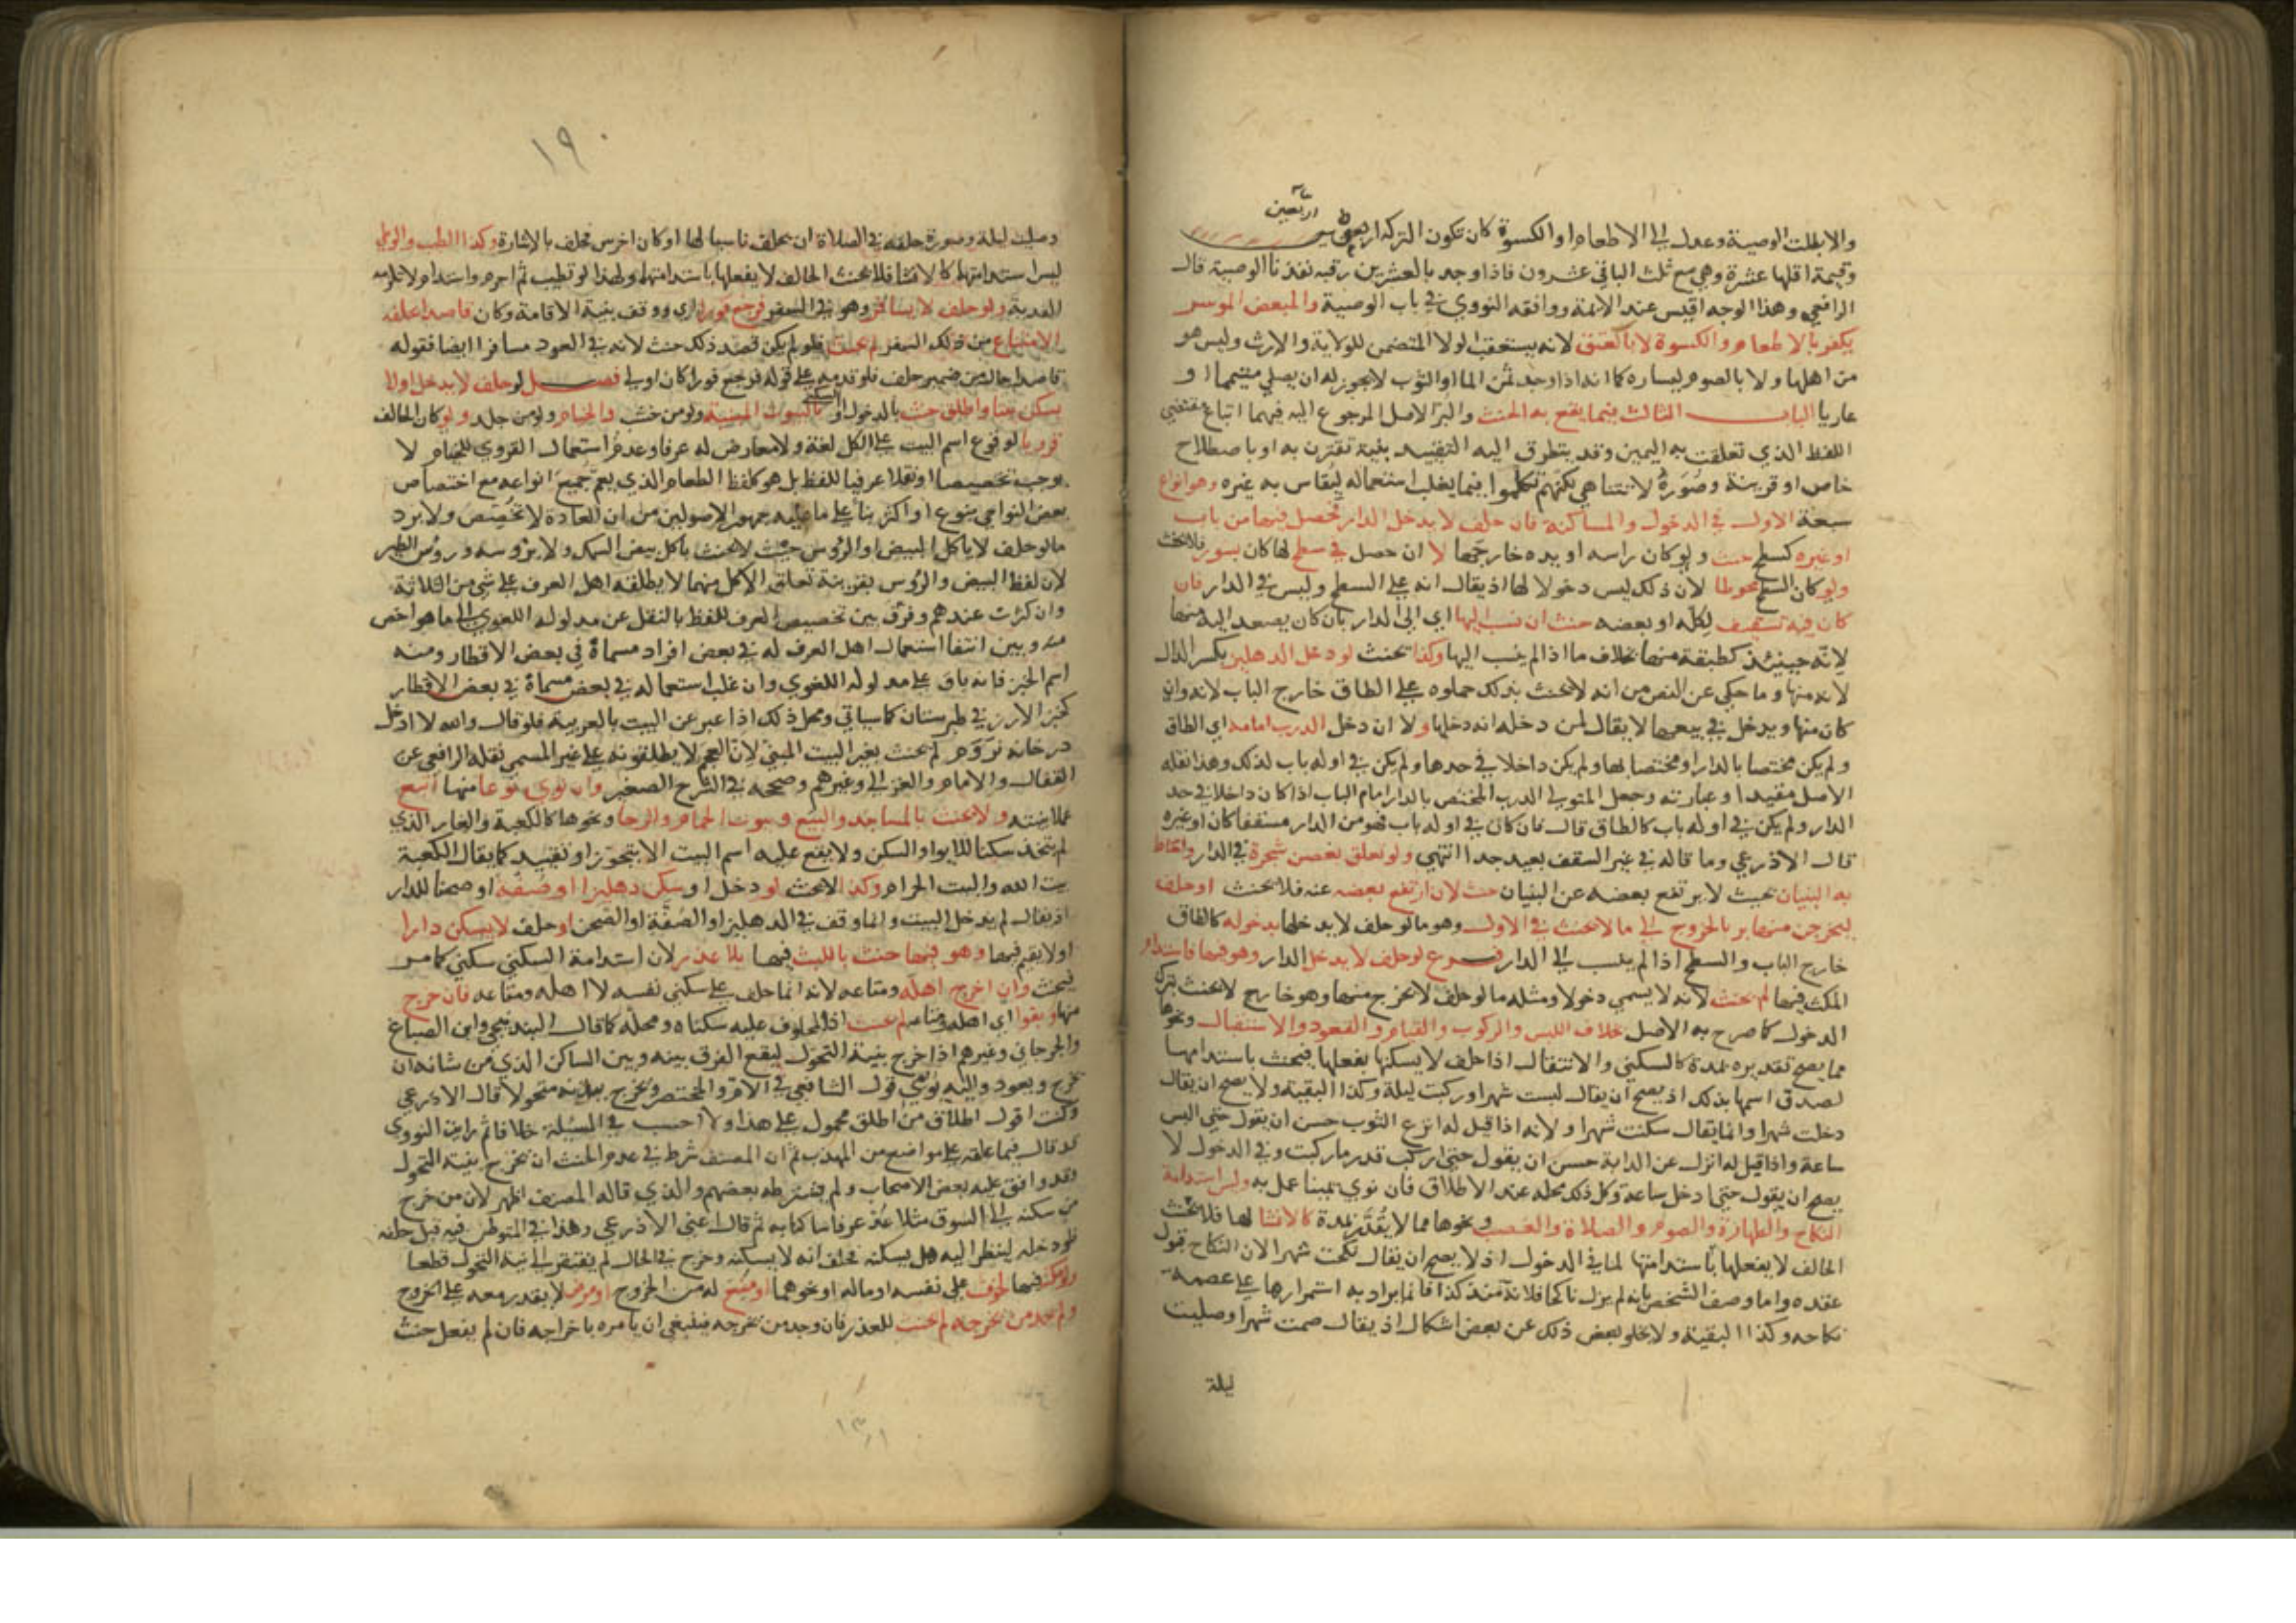 اربعين
والا بطلت الوصية وعدل الى الاطعام او الكسوة كان تكون التركة اربعين
وقيمة اقلها عشرة وهي مع ثلث الباقي عشرون فاذا وجد بالعشرين رقبه نفذنا الوصية قال
الرافعي وهذا الوجه اقيس عند الائمة ووافقه النووي في باب الوصية والمبعض الموسر
يكفر بالاطعام والكسوة لا بالعتق لانه يستعقب الولا المتضمن للولاية والارث وليس هو
من اهلها ولا بالصوم ليساره كما انه اذا وجد ثمن الما او الثوب لا يجوز له ان يصلي متيمما او
عاريا الباب الثالث فيما يقع به الحنث والبر الاصل المرجوع اليه فيهما اتباع مقتضى
اللفظ الذي تعلقت به اليمين وقد يتطرق اليه التقييد بنية تقترن به او باصطلاح
خاص او قرينة وصوره لا تتناهى لكنهم تكلموا فيما يغلب استعماله ليقاس به غيره وهو انواع
سبعة الاول في الدخول والمساكنة فان حلف لا يدخل الدار فحصل فيها من باب
او غيره كسطح حنث ولو كان راسه او يده خارجها لا ان حصل في سطح لها كان بسور فلا يحنث
ولو كان السطح محوطا لان ذلك ليس دخولا لها اذ يقال انه على السطح وليس في الدار فان
كان فيه تسقيف لكله او بعضه حنث ان نسب اليها اي الى الدار بان كان يصعد اليه منها
لانه حينئذ كطبقة منها بخلاف ما اذا لم ينسب اليها وكذا يحنث لو دخل الدهليز بكسر الدال
لانه منها وما حكي عن النص من انه لا يحنث بذلك حملوه على الطاق خارج الباب لانه وان
كان منها ويدخل في بيعها لا يقال لمن دخله انه دخلها ولا ان دخل الدرب امامه اي الطاق
ولم يكن مختصا بالدار او مختصا بها ولم يكن داخلا في حدها ولم يكن في اوله باب لذلك وهذا نقله
الاصل مقيدا وعبارته وجعل المتولي الدرب المختص بالدار امام الباب اذا كان داخلا في حد
الدار ولم يكن في اوله باب كالطاق قال فان كان في اوله باب فهو من الدار مسقفا كان او غيره
قال الاذرعي وما قاله في غير السقف بعيد جدا انتهى ولو تعلق بغصن شجرة في الدار واحاط
به البنيان بحيث لا يرتفع بعضه عن البنيان حنث لا ان ارتفع بعضه عنه فلا يحنث او حلف
ليخرجن منها بر بالخروج الى ما لا يحنث في الاول وهو ما لو حلف لا يدخلها بدخوله كالطاق
خارج الباب والسطح اذا لم ينسب الى الدار فرع لو حلف لا يدخل الدار وهو فيها فاستدام
المكث فيها لم يحنث لانه لا يسمى دخولا ومثله ما لو حلف لا يخرج منها وهو خارج لا يحنث بترك
الدخول كما صرح به الاصل بخلاف اللبس والركوب والقيام والقعود والاستقبال ونحوها
مما يصح تقديره بمدة كالسكنى والانتقال اذا حلف لا يسكنها بفعلها فيحنث باستدامها
لصدق اسمها بذلك اذ يصح ان يقال لبست شهرا وركبت ليلة وكذا البقية ولا يصح ان يقال
دخلت شهرا وانما يقال سكنت شهرا ولانه اذا قيل له انزع الثوب حسن ان يقول حتى البس
ساعة واذا قيل له انزل عن الدابة حسن ان يقول حتى اركب قدر ما ركبت وفي الدخول لا
يصح ان يقول حتى ادخل ساعة وكل ذلك محله عند الاطلاق فان نوى يمينا عمل به وليس استدامة
النكاح والطهارة والصوم والصلاة والغصب ونحوها مما لا يقدر بمدة كالانشا لها فلا يحنث
الحالف لا يفعلها باستدامتها لما في الدخول اذ لا يصح ان يقال نكحت شهرا لان النكاح قبول
عقده واما وصف الشخص بانه لم يزل ناكحا فلانة منذ كذا فانما يراد به استمرارها على عصمة
نكاحه وكذا البقية ولا يخلو بعض ذلك عن بعض اشكال اذ يقال صمت شهرا وصليت
ليلة
١٩٠
وصليت ليلة وصورة حلفه في الصلاة ان يحلف ناسيا لها او كان اخرس فحلف بالاشارة وكذا الطيب والوطي
ليس استدامتها كالانشا فلا يحنث الحالف لا يفعلها باستدامتها ولهذا لو تطيب ثم احرم واستدام لا تلزمه
الفدية ولو حلف لا يسافر وهو في السفر فرجع فورا اي ووقف بنية الاقامة وكان قاصدا بحلفه
الامتناع من ذلك السفر لم يحنث فلو لم يكن قصد ذلك حنث لانه في العود مسافرا ايضا فقوله
قاصدا حال من ضمير حلف فلو قدمه على قوله فرجع فورا كان اولى فصل لو حلف لا يدخل او لا
يسكن بيتا واطلق حنث بالدخول او السكنى بالبيوت المبنية ولو من خشب والخيام ولو من جلد ولو كان الحالف
قرويا لوقوع اسم البيت على الكل لغة ولا معارض له عرفا وعدم استعمال القروي للخيام لا
يوجب تخصيصا او نقلا عرفيا للفظ بل هو كلفظ الطعام الذي يعم جميع انواعه مع اختصاص
بعض النواحي بنوع او اكثر بناء على ما عليه جمهور الاصوليين من ان العادة لا تخصص ولا يرد
ما لو حلف لا ياكل البيض او الرؤس حيث لا يحنث باكل بيض السمك ولا برؤسه ورؤس الطير
لان لفظ البيض والرؤس بقرينة تعلق الاكل منهما لا يطلقه اهل العرف على شي من الثلاثة
وان كثرت عندهم وفرق بين تخصيص العرف للفظ بالنقل عن مدلوله اللغوي الى ما هو اخص
منه وبين انتفا استعمال اهل العرف له في بعض افراد مسماه في بعض الاقطار ومنه
اسم الخبز فانه باق على مدلوله اللغوي وان غلب استعماله في بعض مسماه في بعض الاقطار
كخبز الارز في طبرستان كما سياتي ومحل ذلك اذا عبر عن البيت بالعربية فلو قال والله لا ادخل
در خانه نروم لم يحنث بغير البيت المبني لان العجم لا يطلقونه على غير المسمى نقله الرافعي عن
القفال والامام والغزالي وغيرهم وصححه في الشرح الصغير وان نوى نوعا منها اتبع
عملا بنيته ولا يحنث بالمساجد والبيع وبيوت الحمام والرحا ونحوها كالكعبة والغار الذي
لم يتخذ سكنا للايواء والسكن ولا يقع عليه اسم البيت الا بتجوز او تقييد كما يقال الكعبة
بيت الله والبيت الحرام وكذا لا يحنث لو دخل او سكن دهليزا او صفة او صحنا للدار
اذ يقال لم يدخل البيت وانما وقف في الدهليز او الصفة او الصحن او حلف لا يسكن دارا
او لا يقيم فيها وهو فيها حنث باللبث فيها بلا عذر لان استدامة السكنى سكنى كما مر
فيحنث وان اخرج اهله ومتاعه لانه انما حلف على سكنى نفسه لا اهله ومتاعه فان خرج
منها وبقوا اي اهله ومتاعه لم يحنث اذ المحلوف عليه سكناه ومحله كما قال البندنيجي وابن الصباغ
والجرجاني وغيرهم اذا خرج بنية التحول ليقع الفرق بينه وبين الساكن الذي من شانه ان
يخرج ويعود واليه يومي قول الشافعي في الام والمختصر ويخرج ببدنه متحولا قال الاذرعي
وكنت اقول اطلاق من اطلق محمول على هذا ولا احسب في المسئلة خلافا ثم رايت النووي
قد قال فيما علقه على مواضع من المهذب ثم ان المصنف شرط في عدم الحنث ان يخرج بنية التحول
وقد وافق عليه بعض الاصحاب ولم يشترطه بعضهم والذي قاله المصنف اظهر لان من خرج
من سكنه الى السوق مثلا عد عرفا ساكنا به ثم قال اعني الاذرعي وهذا في المتوطن فيه قبل حلفه
فلو دخله لينظر اليه هل يسكنه فحلف انه لا يسكنه وخرج في الحال لم يفتقر الى نية التحول قطعا
ولو مكث فيها لخوف على نفسه او ماله او نحوهما او منع له من الخروج او مرض لا يقدر معه على الخروج
ولم يجد من يخرجه لم يحنث للعذر فان وجد من يخرجه فينبغي ان يامره باخراجه فان لم يفعل حنث